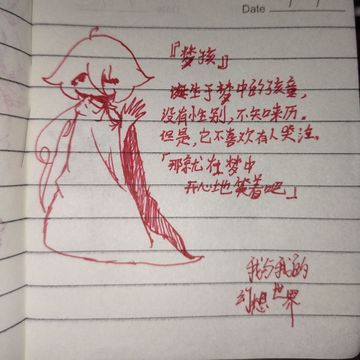 Date
『梦孩』
诞生于梦中的孩童,
没有性别,不知来历。
但是,它不喜欢有人哭泣。
「那就在梦中
开心地笑着吧。」
我与我的
幻想世界